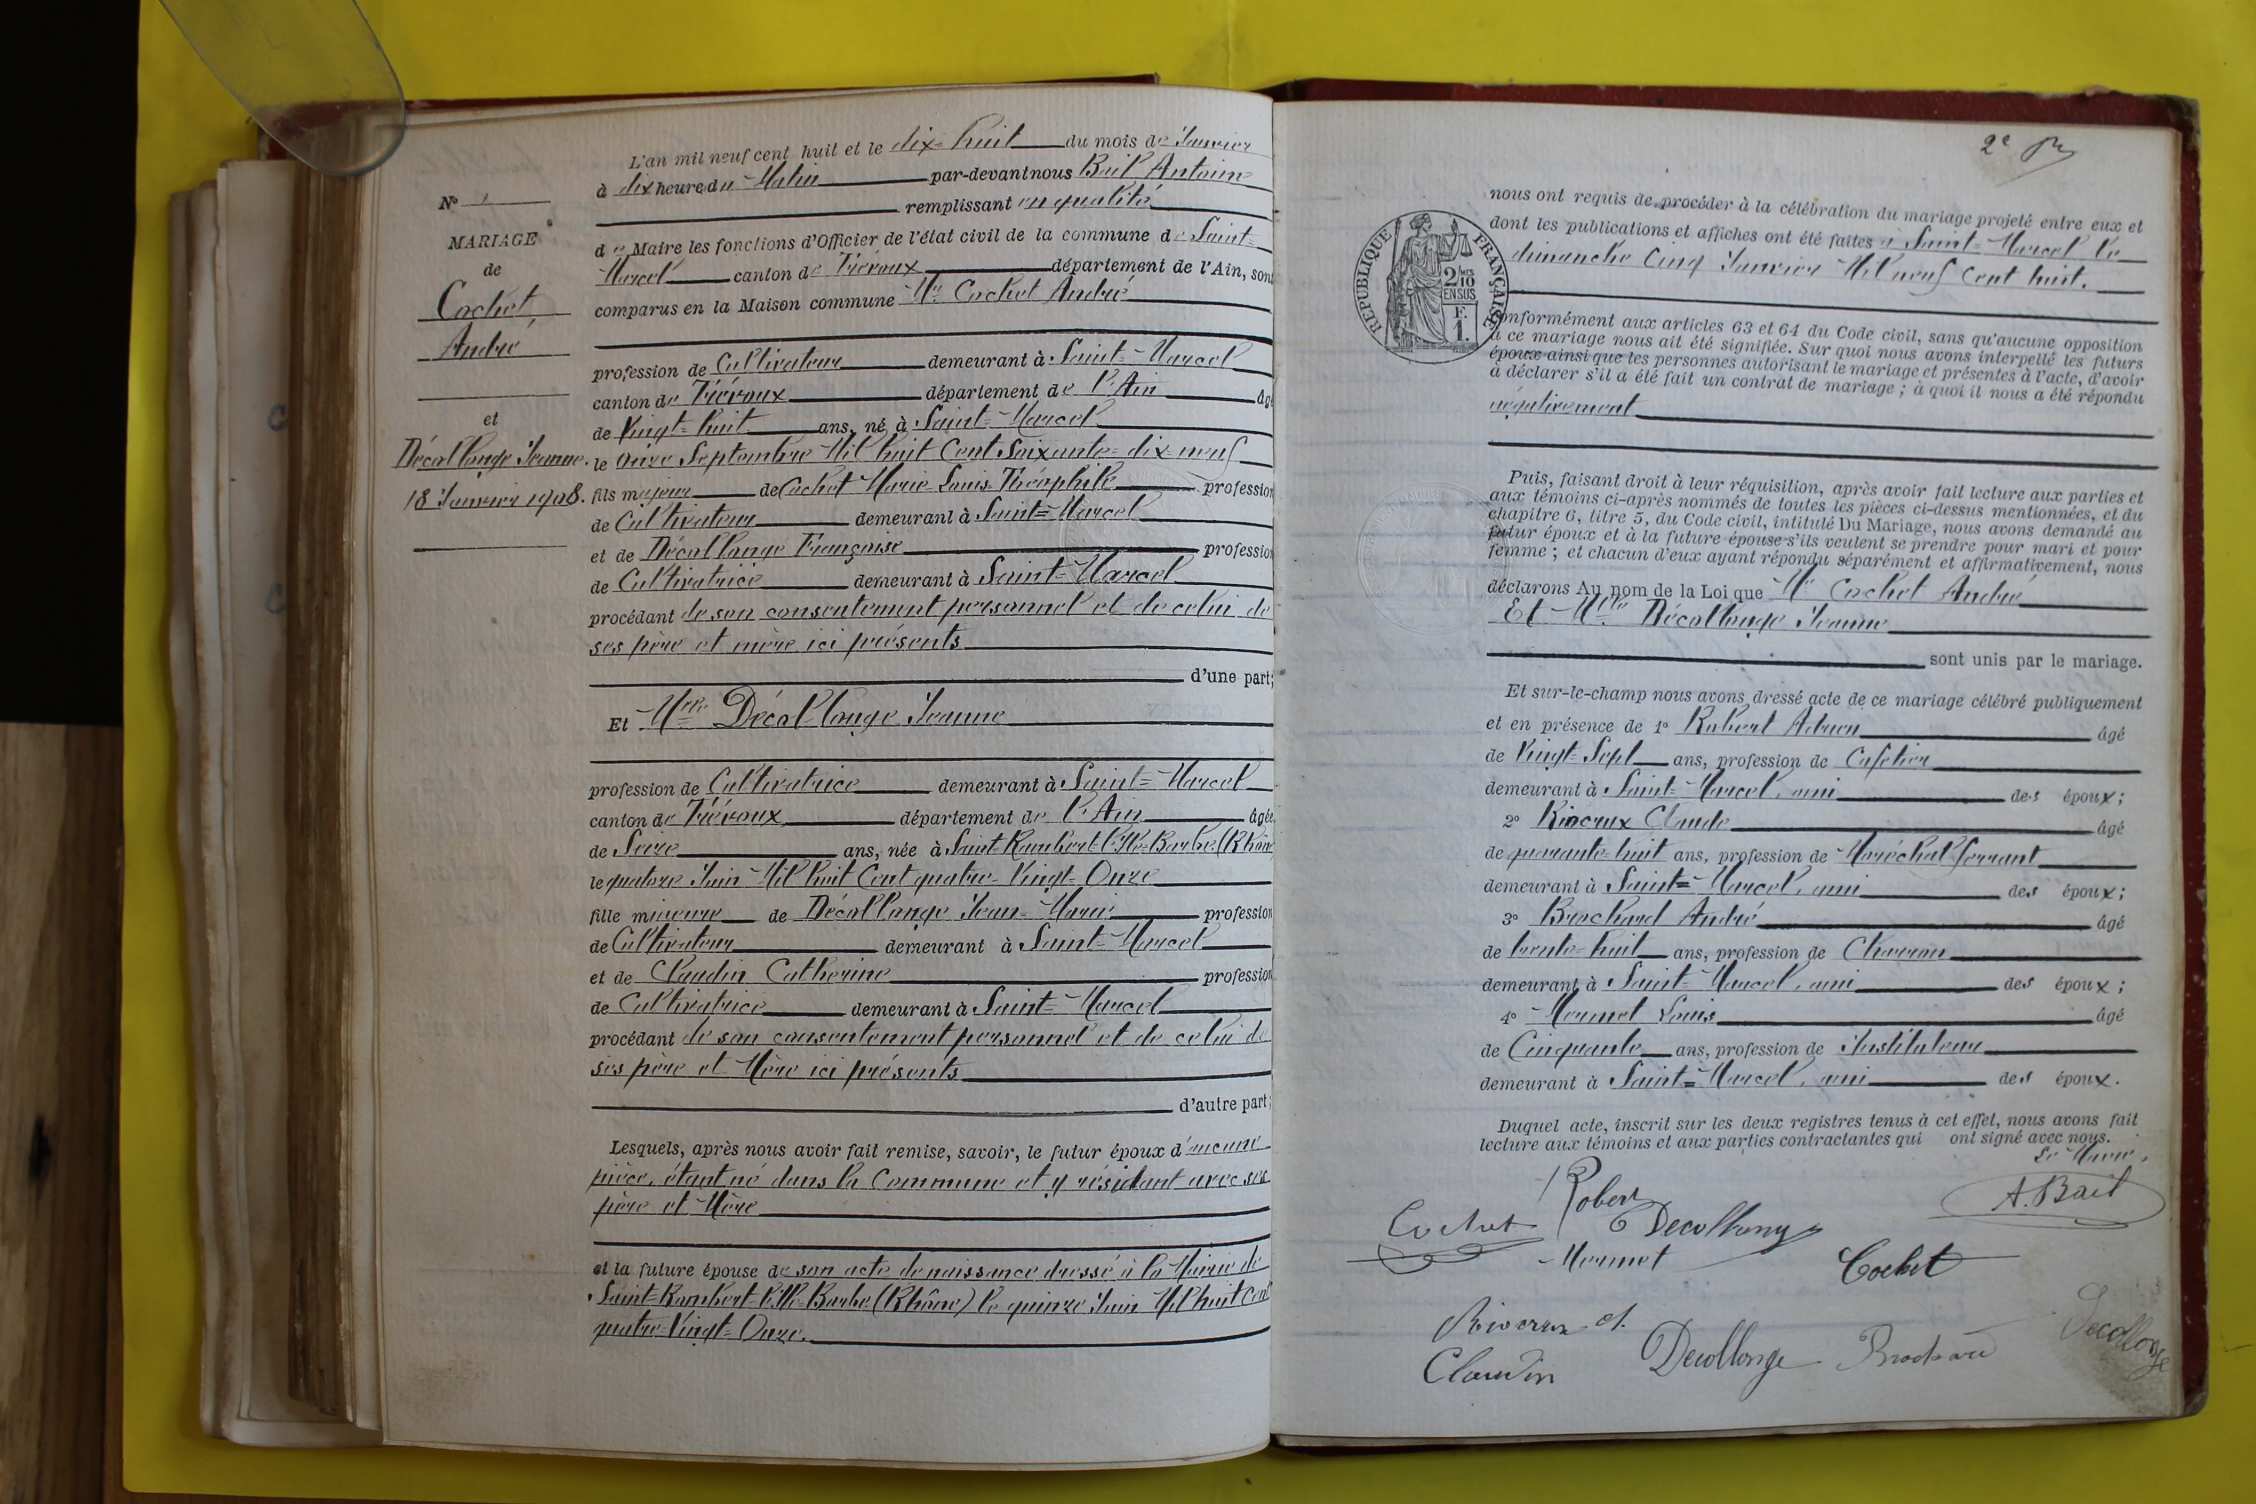 L'an mil neuf cent huit et le dix-huit du mois de Janvier
à dix heure du Matin par-devant nous Bail Antoine
remplissant en qualité
de Maire les fonctions d'Officier de l'état civil de la commune de Saint-
Marcel canton de Trévoux département de l'Ain, sont
comparus en la Maison commune Mr Cochet André
profession de Cultivateur demeurant à Saint-Marcel
canton de Trévoux département de l'Ain âgé
de Vingt-huit ans, né à Saint-Marcel
le onze Septembre Mil huit Cent Soixante-dix-neuf
fils majeur de Cochet Marie Louis Théophile profession
de Cultivateur demeurant à Saint-Marcel
et de Décollonge Françoise profession
de Cultivatrice demeurant à Saint-Marcel
procédant de son consentement personnel et de celui de
ses père et mère ici présents
d'une part;
Et Melle Décollonge Jeanne
profession de Cultivatrice demeurant à Saint-Marcel
canton de Trévoux département de l'Ain âgée
de Seize ans, née à Saint-Rambert-l'Ile-Barbe (Rhône
le quatorze Juin Mil huit Cent quatre-Vingt-Onze
fille mineure de Décollonge Jean-Marie profession
de Cultivateur demeurant à Saint-Marcel
et de Claudin Catherine profession
de Cultivatrice demeurant à Saint-Marcel
procédant de son consentement personnel et de celui de
ses père et Mère ici présents
d'autre part;
Lesquels, après nous avoir fait remise, savoir, le futur époux d'aucune
pièce, étant né dans la Commune et y résidant avec ses
père et Mère
et la future épouse de son acte de naissance dressé à la Mairie de
Saint-Rambert-l'Ile-Barbe (Rhône) le quinze Juin Mil huit Cent
quatre-Vingt-Onze.
N° 1
MARIAGE
de
Cochet
André
et
Décollonge Jeanne.
18 Janvier 1908.
2e
RÉPUBLIQUE FRANÇAISE
2/10
EN SUS
F.
1.
nous ont requis de procéder à la célébration du mariage projeté entre eux et
dont les publications et affiches ont été faites à Saint-Marcel le
dimanche Cinq Janvier Mil neuf Cent huit.
Conformément aux articles 63 et 64 du Code civil, sans qu'aucune opposition
à ce mariage nous ait été signifiée. Sur quoi nous avons interpellé les futurs
époux ainsi que les personnes autorisant le mariage et présentes à l'acte, d'avoir
à déclarer s'il a été fait un contrat de mariage; à quoi il nous a été répondu
négativement
Puis, faisant droit à leur réquisition, après avoir fait lecture aux parties et
aux témoins ci-après nommés de toutes les pièces ci-dessus mentionnées, et du
chapitre 6, titre 5, du Code civil, intitulé Du Mariage, nous avons demandé au
futur époux et à la future épouse s'ils veulent se prendre pour mari et pour
femme; et chacun d'eux ayant répondu séparément et affirmativement, nous
déclarons Au nom de la Loi que Mr Cochet André
Et Melle Décollonge Jeanne
sont unis par le mariage.
Et sur-le-champ nous avons dressé acte de ce mariage célébré publiquement
et en présence de 1° Robert Adrien âgé
de Vingt-Sept ans, profession de Cafetier
demeurant à Saint-Marcel, ami des époux;
2° Rivereux Claude âgé
de quarante-huit ans, profession de Maréchal-ferrant
demeurant à Saint-Marcel, ami des époux;
3° Brochard André âgé
de trente-huit ans, profession de Charron
demeurant à Saint-Marcel, ami des époux;
4° Mermet Louis âgé
de Cinquante ans, profession de Instituteur
demeurant à Saint-Marcel, ami des époux.
Duquel acte, inscrit sur les deux registres tenus à cet effet, nous avons fait
lecture aux témoins et aux parties contractantes qui ont signé avec nous.
Le Maire,
A. Bail
Robert
Cochet Decollonge
Mermet Cochet
Rivereux Cl.
Claudin Decollonge Brochard Decollonge